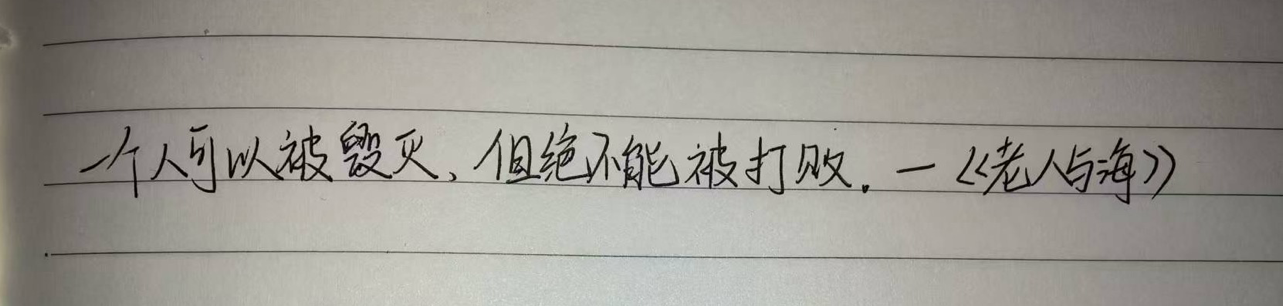 一个人可以被毁灭、但绝不能被打败.—《老人与海》